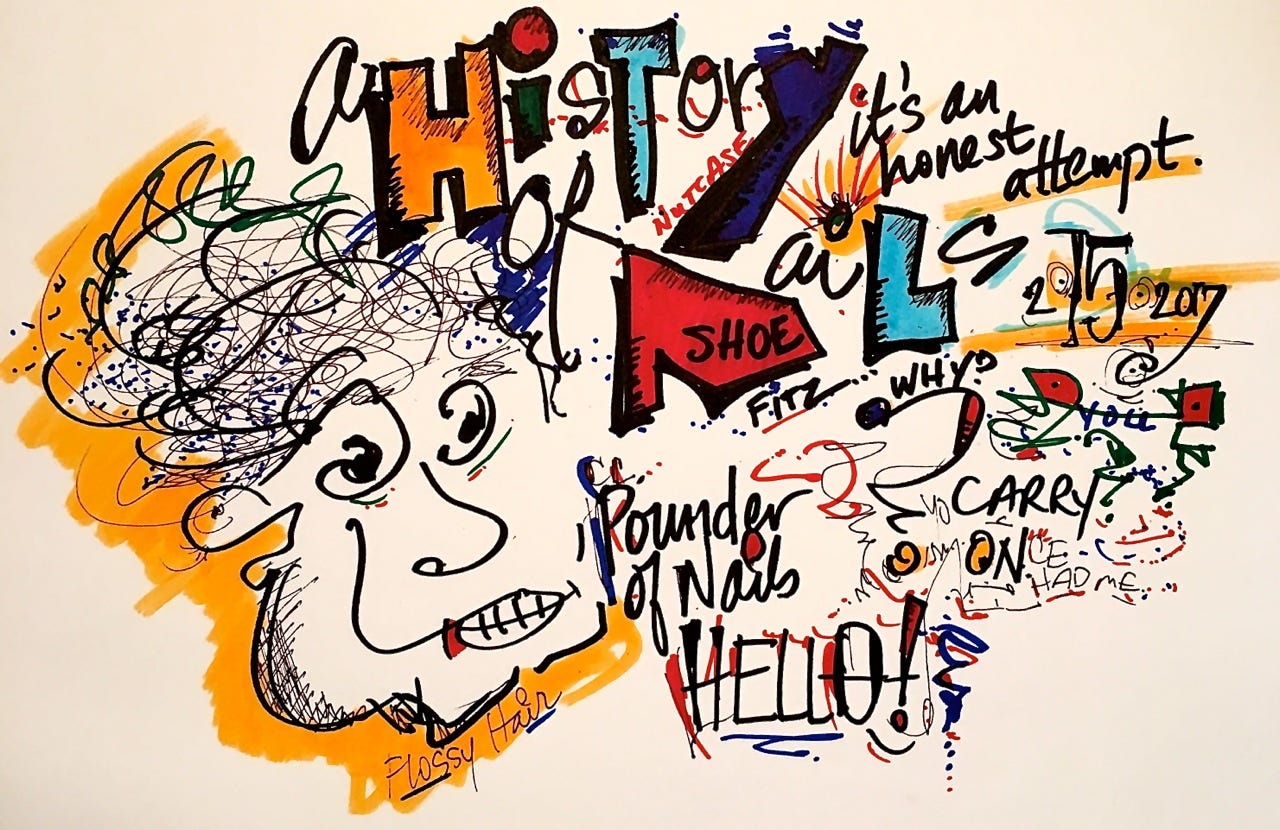 a HiSTOry
NUTCASE
it's an
honest
attempt.
of
NaiLS
SHOE
FITZ
WHY?
2 15 2017
YOU
CARRY
ON
ONCE
HAD ME
Pounder
of Nails
HELLO!
Flossy Hair